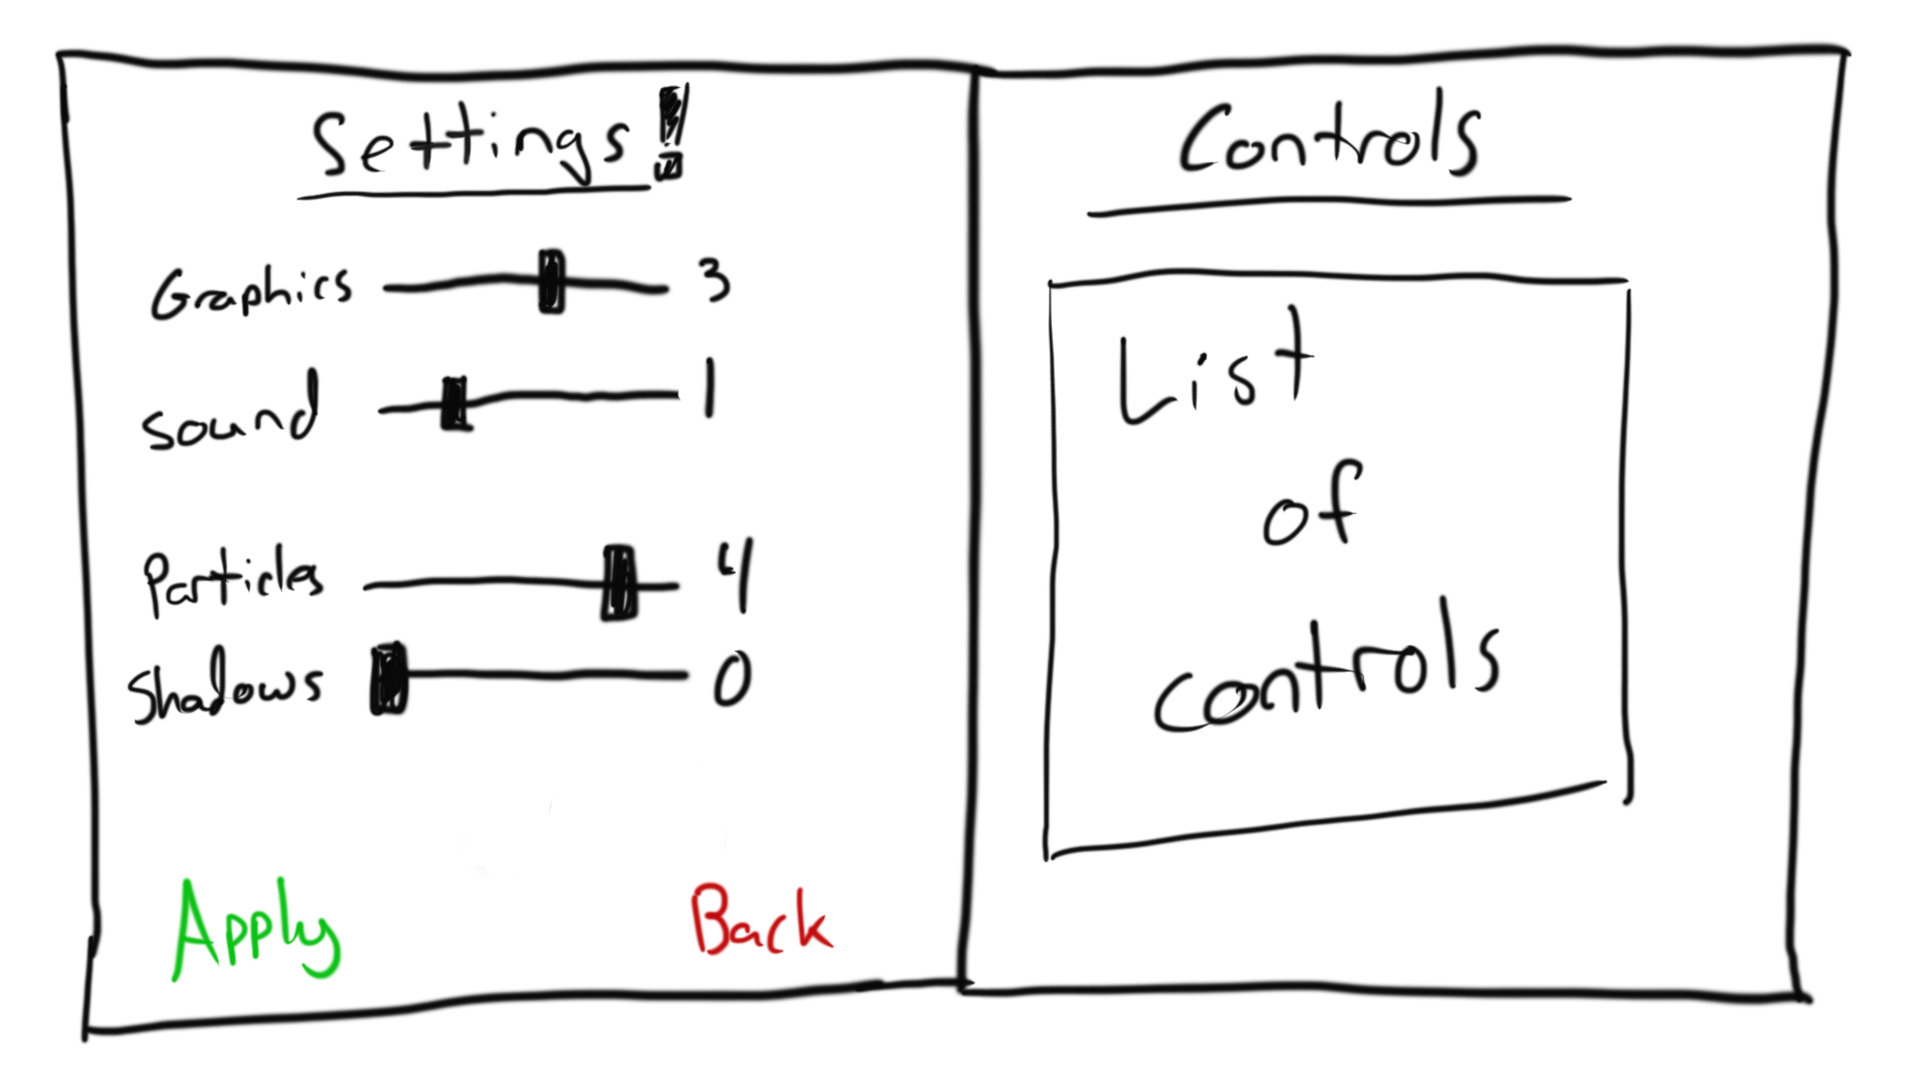 Settings!
Graphics 3
Sound 1
Particles 4
Shadows 0
Apply Back
Controls
List
of
controls